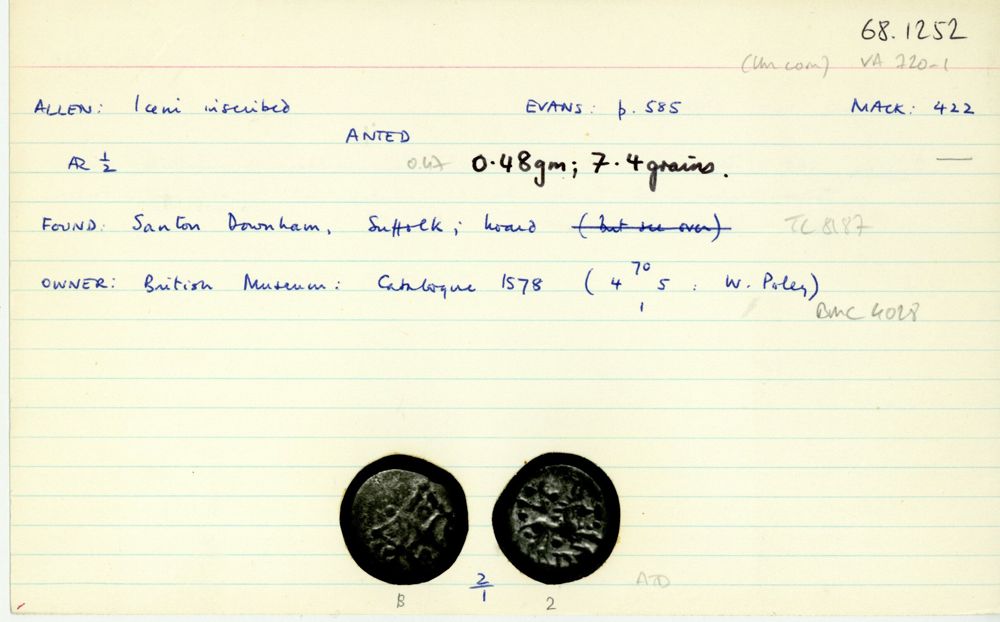 68.1252
(Uncom) VA 720-1
ALLEN: Iceni inscribed EVANS: p. 585 MACK: 422
ANTED
AR ½ 0.47 0.48gm; 7.4grains. —
FOUND: Santon Downham, Suffolk; hoard (but see over) TC 8187
OWNER: British Museum: Catalogue 1578 (4 70 5 : W. Poley)
1
BMC 4028
2/1 ATD
B 2